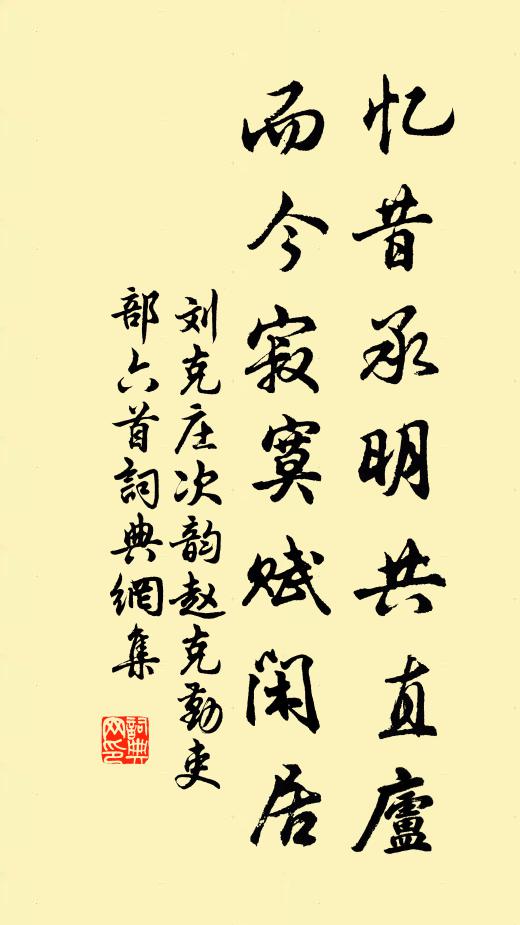 忆昔承明共直廬
而今寂寞赋闲居
刘克庄次韵赵克勤吏
部六首詞典網集
詞典
网印